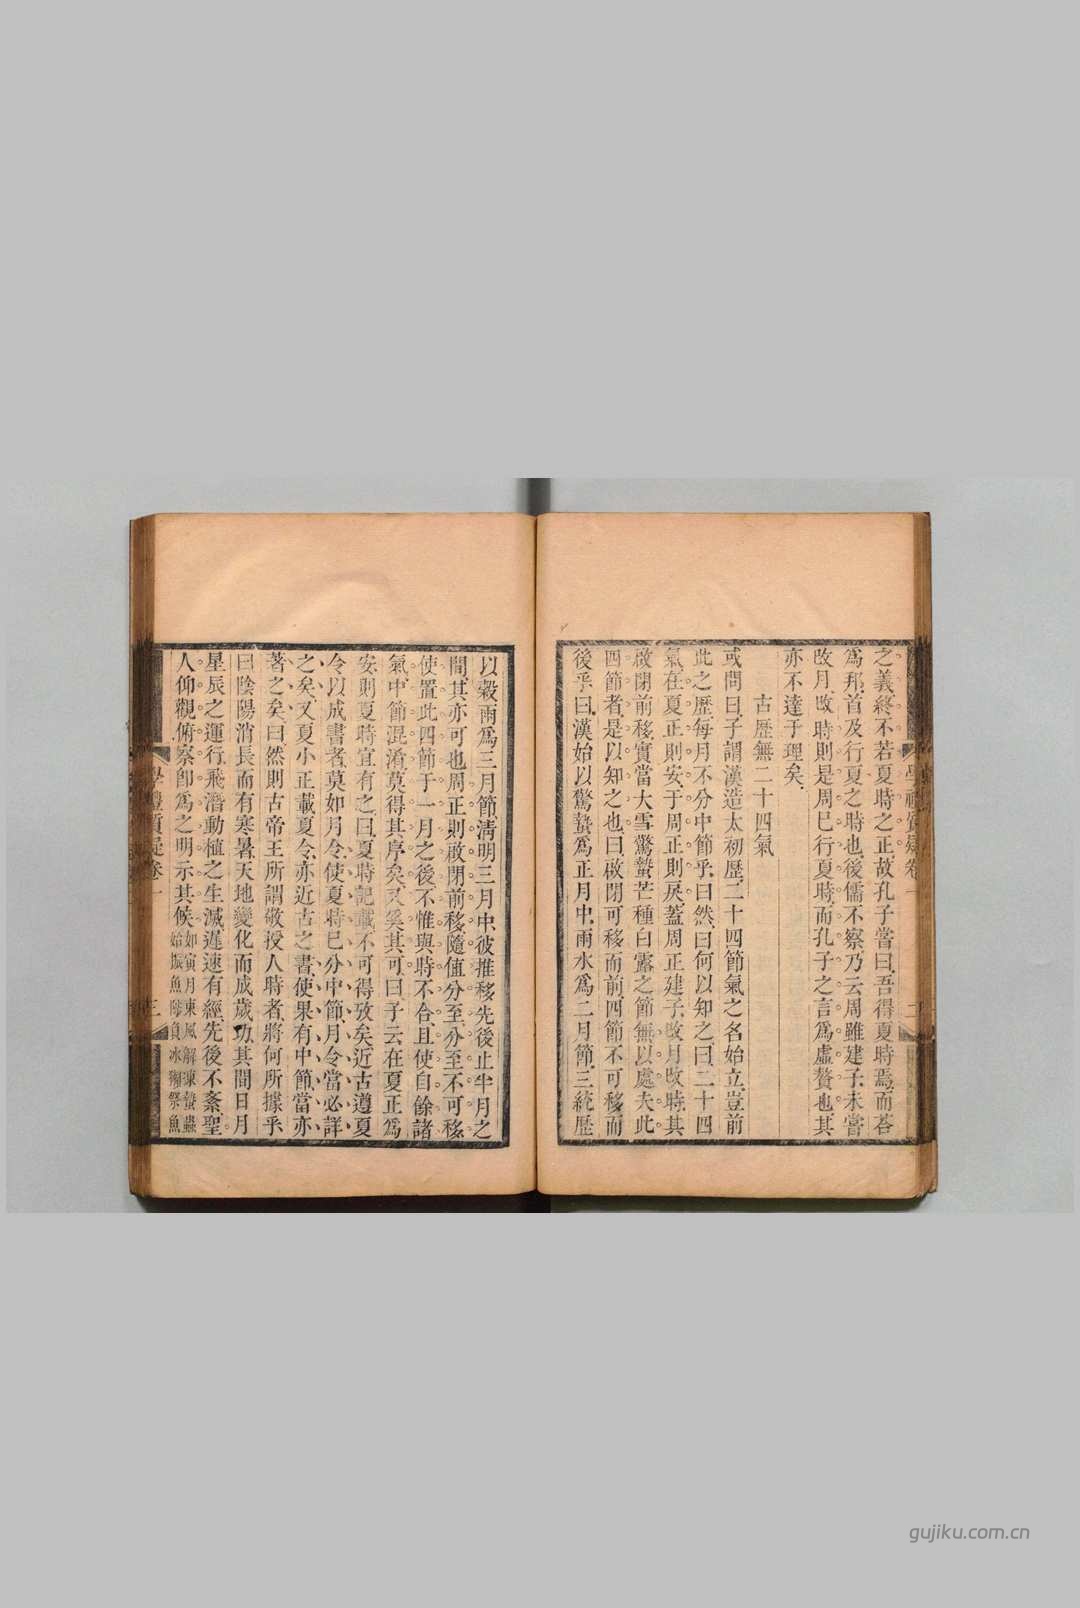 之義終不若夏時之正故孔子嘗曰吾得夏時焉而荅
爲邦首及行夏之時也後儒不察乃云周雖建子未嘗
改月改時則是周巳行夏時而孔子之言爲虛贅也其
亦不達于理矣
古歷無二十四氣
或問曰子謂漢造太初歷二十四節氣之名始立豈前
此之歷每月不分中節乎曰然曰何以知之曰二十四
氣在夏正則安于周正則戾蓋周正建子改月改時其
啟閉前移實當大雪驚蟄芒種白露之節無以處夫此
四節者是以知之也曰啟閉可移而前四節不可移而
後乎曰漢始以驚蟄爲正月中雨水爲二月節三統歷
學禮質疑卷一
以穀雨爲三月節清明三月中彼推移先後止半月之
間其亦可也周正則啟閉前移隨值分至分至不可移
使置此四節于一月之後不惟與時不合且使自餘諸
氣中節混淆莫得其序矣又奚其可曰子云在夏正爲
安則夏時宜有之曰夏時記載不可得攷矣近古遵夏
令以成書者莫如月令使夏時巳分中節月令當必詳
之矣又夏小正載夏令亦近古之書使果有中節當亦
著之矣曰然則古帝王所謂敬授人時者將何所據乎
曰陰陽消長而有寒暑天地變化而成歲功其間日月
星辰之運行飛潛動植之生滅遲速有經先後不紊聖
人仰觀俯察卽爲之明示其候如寅月東風解凍蟄蟲
始振魚陟負冰獺祭魚
學禮質疑卷一
三
gujiku.com.cn